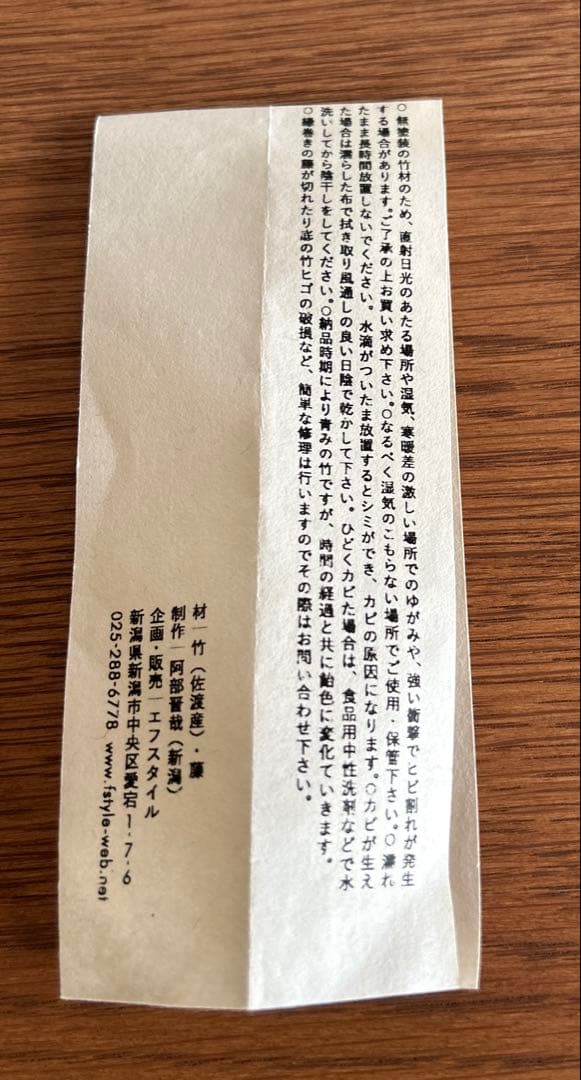 ○無塗装の竹材のため、直射日光のあたる場所や湿気、寒暖差の激しい場所でのゆがみや、強い衝撃でヒビ割れが発生
する場合があります。ご了承の上お買い求め下さい。○なるべく湿気のこもらない場所でご使用・保管下さい。○濡れ
たまま長時間放置しないでください。水滴がついたまま放置するとシミができ、カビの原因になります。○カビが生え
た場合は濡らした布で拭き取り風通しの良い日陰で乾かして下さい。ひどくカビた場合は、食品用中性洗剤などで水
洗いしてから陰干しをしてください。○納品時期により青みの竹ですが、時間の経過と共に飴色に変化していきます。
○縁巻きの籐が切れたり底の竹ヒゴの破損など、簡単な修理は行いますのでその際はお問い合わせ下さい。
材｜竹（佐渡産）・藤
制作｜阿部晋哉（新潟）
企画・販売｜エフスタイル
新潟県新潟市中央区愛宕1-7-6
025-288-6778 www.fstyle-web.net